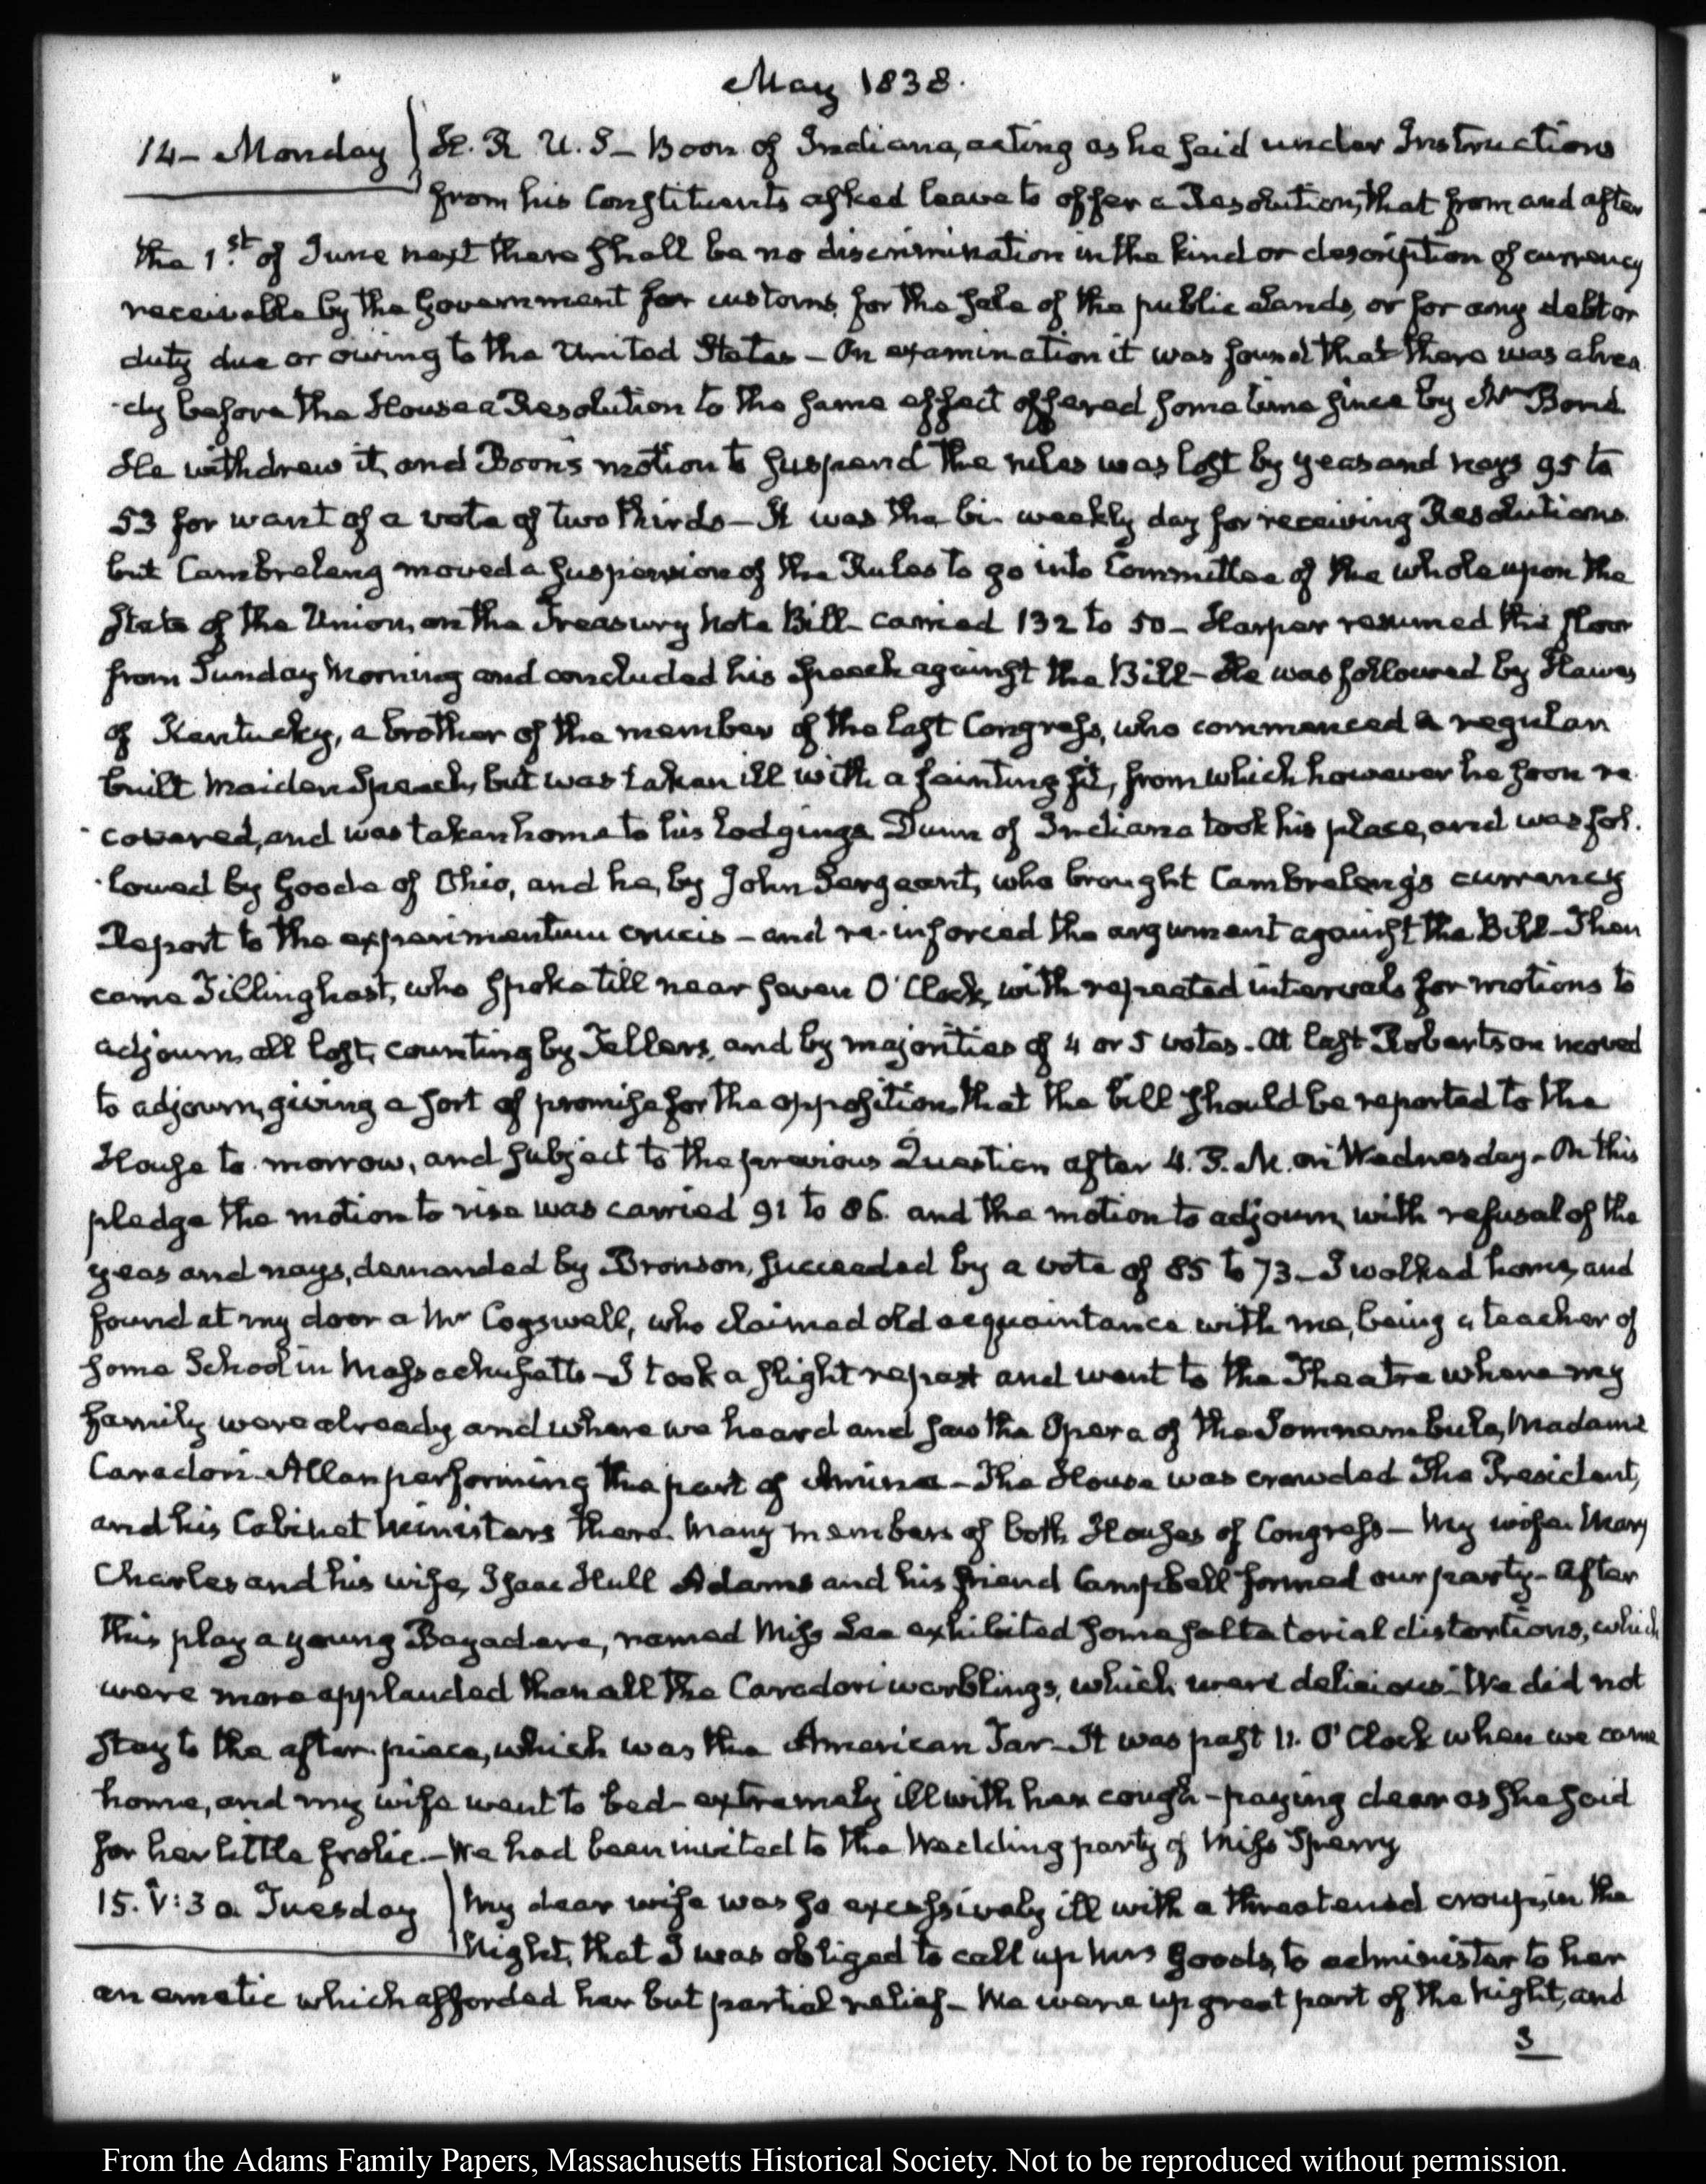 May 1838.
14 - Monday H. R. U. S - Boon of Indiana, acting as he said under Instructions
from his Constituents asked leave to offer a Resolution, that from and after
the 1st. of June next there shall be no discrimination in the kind or description of currency
receivable by the Government for customs, for the sale of the public Lands, or for any debt or
duty due or owing to the United States - On examination it was found that there was alrea
-dy before the House a Resolution to the same effect offered some time since by Mr Bond.
He withdrew it, and Boon's motion to suspend the rules was lost by yeas and nays 95 to
53 for want of a vote of two thirds - It was the bi-weekly day for receiving Resolutions
but Cambreleng moved a suspension of the Rules to go into Committee of the whole upon the
State of the Union, on the Treasury Note Bill - carried 132 to 50 - Harper resumed the floor
from Sunday Morning and concluded his speech against the Bill - He was followed by Hawes
of Kentucky, a brother of the member of the last Congress, who commenced a regular
built Maiden Speech, but was taken ill with a fainting fit, from which however he soon re
-covered, and was taken home to his lodgings Dunn of Indiana took his place, and was fol.
-lowed by Goode of Ohio, and he, by John Sergeant, who brought Cambreleng's currency
Report to the experimentum crucis - and re-inforced the argument against the Bill - Then
came Tillinghast, who spoke till near seven O'Clock, with repeated intervals for motions to
adjourn, all lost, counting by Tellers, and by majorities of 4 or 5 votes. At last Robertson moved
to adjourn, giving a sort of promise for the opposition, that the bill should be reported to the
House to-morrow, and subject to the previous Question after 4. P. M. on Wednesday - On this
pledge the motion to rise was carried 91 to 86. and the motion to adjourn, with refusal of the
yeas and nays, demanded by Bronson, succeeded by a vote of 85 to 73 - I walked home, and
found at my door a Mr Cogswell, who claimed old acquaintance with me, being a teacher of
some School in Massachusetts - I took a slight repast and went to the Theatre where my
family were already and where we heard and saw the Opera of the Somnambula, Madame
Caradori Allan performing the part of Amina - The House was crowded The President,
and his Cabinet Ministers there. Many members of both Houses of Congress - My wife Mary
Charles and his wife, Isaac Hull Adams and his friend Campbell formed our party - After
this play a young Bayadere, named Miss Lee exhibited some saltatorial distortions, which
were more applauded than all the Caradori warblings, which were delicious - We did not
stay to the after-piece, which was the American Tar - It was past 11. O'Clock when we came
home, and my wife went to bed extremely ill with her cough - paying dear as she said
for her little frolic. - We had been invited to the Wedding party of Miss Sperry
15. V: 30. Tuesday My dear wife was so excessively ill with a threatened croup, in the
Night, that I was obliged to call up Mrs Goods, to administer to her
an emetic which afforded her but partial relief - We were up great part of the Night, and
S
From the Adams Family Papers, Massachusetts Historical Society. Not to be reproduced without permission.